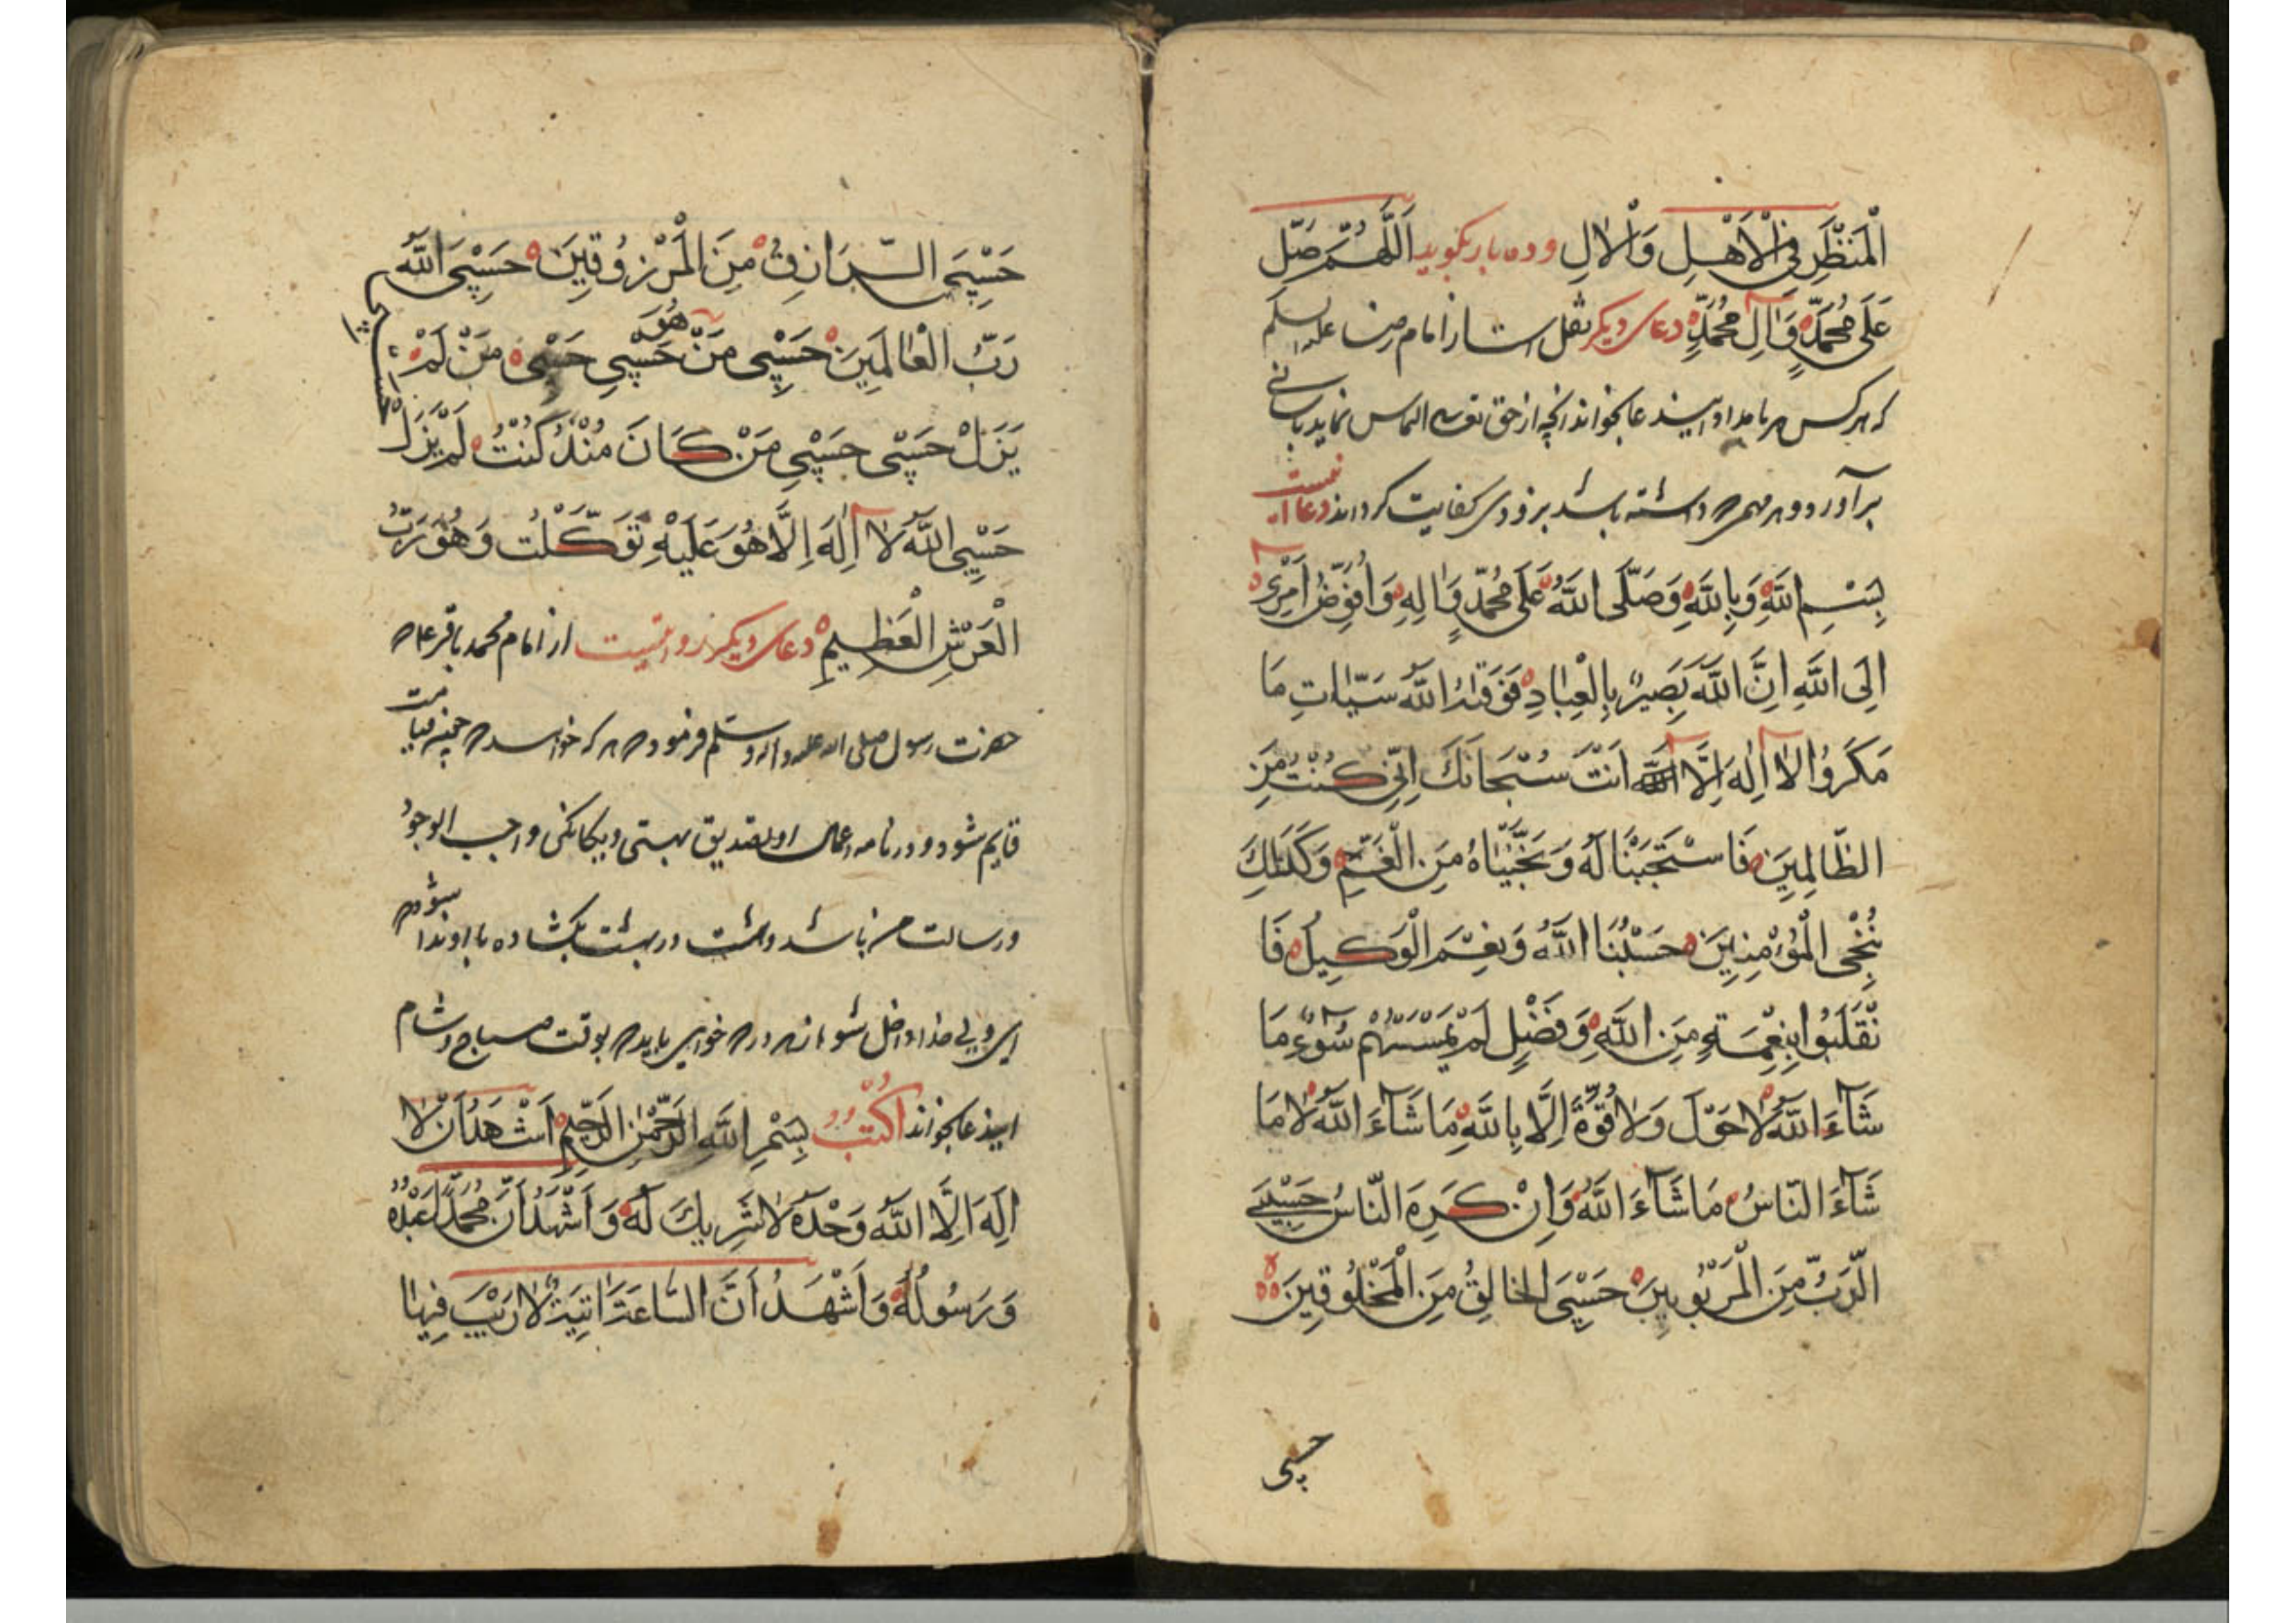 الْمَنْظَرِ فِي الْاَهْلِ وَالْاٰلِ و ده بار بگوید اَللّٰهُمَّ صَلِّ
عَلٰى مُحَمَّدٍ وَاٰلِ مُحَمَّدٍ دعای دیگر نقل است از امام رضا علیه السلم
که هر کس هر بامداد این دعا بخواند آنچه از حق تعالی التماس نماید باسانی
برآورد و هر مهمی که داشته باشد بزودی کفایت گرداند دعا اینست
بِسْمِ اللّٰهِ وَبِاللّٰهِ وَصَلَّى اللّٰهُ عَلٰى مُحَمَّدٍ وَاٰلِهِ وَاُفَوِّضُ اَمْرِى
اِلَى اللّٰهِ اِنَّ اللّٰهَ بَصِيرٌ بِالْعِبَادِ فَوَقٰيهُ اللّٰهُ سَيِّاٰتِ مَا
مَكَرُوا لَا اِلٰهَ اِلَّا اَنْتَ سُبْحَانَكَ اِنِّى كُنْتُ مِنَ
الظَّالِمِينَ فَاسْتَجَبْنَا لَهُ وَنَجَّيْنَاهُ مِنَ الْغَمِّ وَكَذٰلِكَ
نُنْجِى الْمُؤْمِنِينَ حَسْبُنَا اللّٰهُ وَنِعْمَ الْوَكِيلُ فَا
نْقَلَبُوا بِنِعْمَةٍ مِنَ اللّٰهِ وَفَضْلٍ لَمْ يَمْسَسْهُمْ سُوءٌ مَا
شَاءَ اللّٰهُ لَا حَوْلَ وَلَا قُوَّةَ اِلَّا بِاللّٰهِ مَا شَاءَ اللّٰهُ لَا مَا
شَاءَ النَّاسُ مَا شَاءَ اللّٰهُ وَاِنْ كَرِهَ النَّاسُ حَسْبِىَ
الرَّبُّ مِنَ الْمَرْبُوبِينَ حَسْبِىَ الْخَالِقُ مِنَ الْمَخْلُوقِينَ
حسبی
حَسْبِىَ الرَّازِقُ مِنَ الْمَرْزُوقِينَ حَسْبِىَ اللّٰهُ
رَبُّ الْعَالَمِينَ حَسْبِى مَنْ هُوَ حَسْبِى حَسْبِى مَنْ لَمْ
يَزَلْ حَسْبِى حَسْبِى مَنْ كَانَ مُنْذُ كُنْتُ لَمْ يَزَلْ
حَسْبِى
حَسْبِىَ اللّٰهُ لَا اِلٰهَ اِلَّا هُوَ عَلَيْهِ تَوَكَّلْتُ وَهُوَ رَبُّ
الْعَرْشِ الْعَظِيمِ دعای دیگر روایتست از امام محمد باقر ع که
حضرت رسول صلی الله علیه واله وسلم فرموده هر که خواسد که چون قیامت
قایم شود و در نامه اعمال او تصدیق بهستی و یگانگی واجب الوجود
و رسالت من باشد و هشت در بهشت بگشاده با او ندا شود که
ای ولی خدا داخل شو از هر در که خواهی باید که بوقت صباح و شام
این دعا بخواند اُكْتُبْ بِسْمِ اللّٰهِ الرَّحْمٰنِ الرَّحِيمِ اَشْهَدُ اَنْ لَا
اِلٰهَ اِلَّا اللّٰهُ وَحْدَهُ لَا شَرِيكَ لَهُ وَاَشْهَدُ اَنَّ مُحَمَّدًا عَبْدُهُ
وَرَسُولُهُ وَاَشْهَدُ اَنَّ السَّاعَةَ اٰتِيَةٌ لَا رَيْبَ فِيهَا